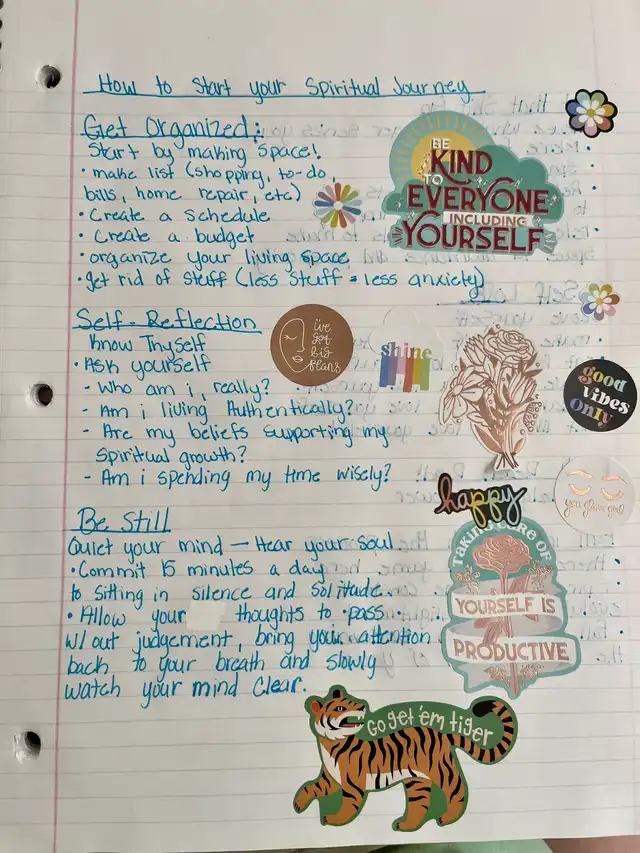 How to Start your Spiritual Journey
Get Organized:
Start by making space!
• make list (shopping, to-do,
bills, home repair, etc)
• Create a schedule
• Create a budget
• organize your living space
• get rid of stuff (less stuff = less anxiety)
BE
KIND
TO
EVERYONE
INCLUDING
YOURSELF
Self-Reflection
Know Thyself
• Ask yourself
- Who am i, really?
- Am i living Authentically?
- Are my beliefs supporting my
spiritual growth?
- Am i spending my time wisely?
i've
got
big
plans
shine
good
vibes
Only
happy
you glow girl
Be Still
Quiet your mind — Hear your soul
• Commit 15 minutes a day
to sitting in silence and solitude.
• Allow your thoughts to pass
w/out judgement, bring your attention
back to your breath and slowly
watch your mind clear.
TAKING CARE OF
YOURSELF IS
PRODUCTIVE
Go get 'em tiger